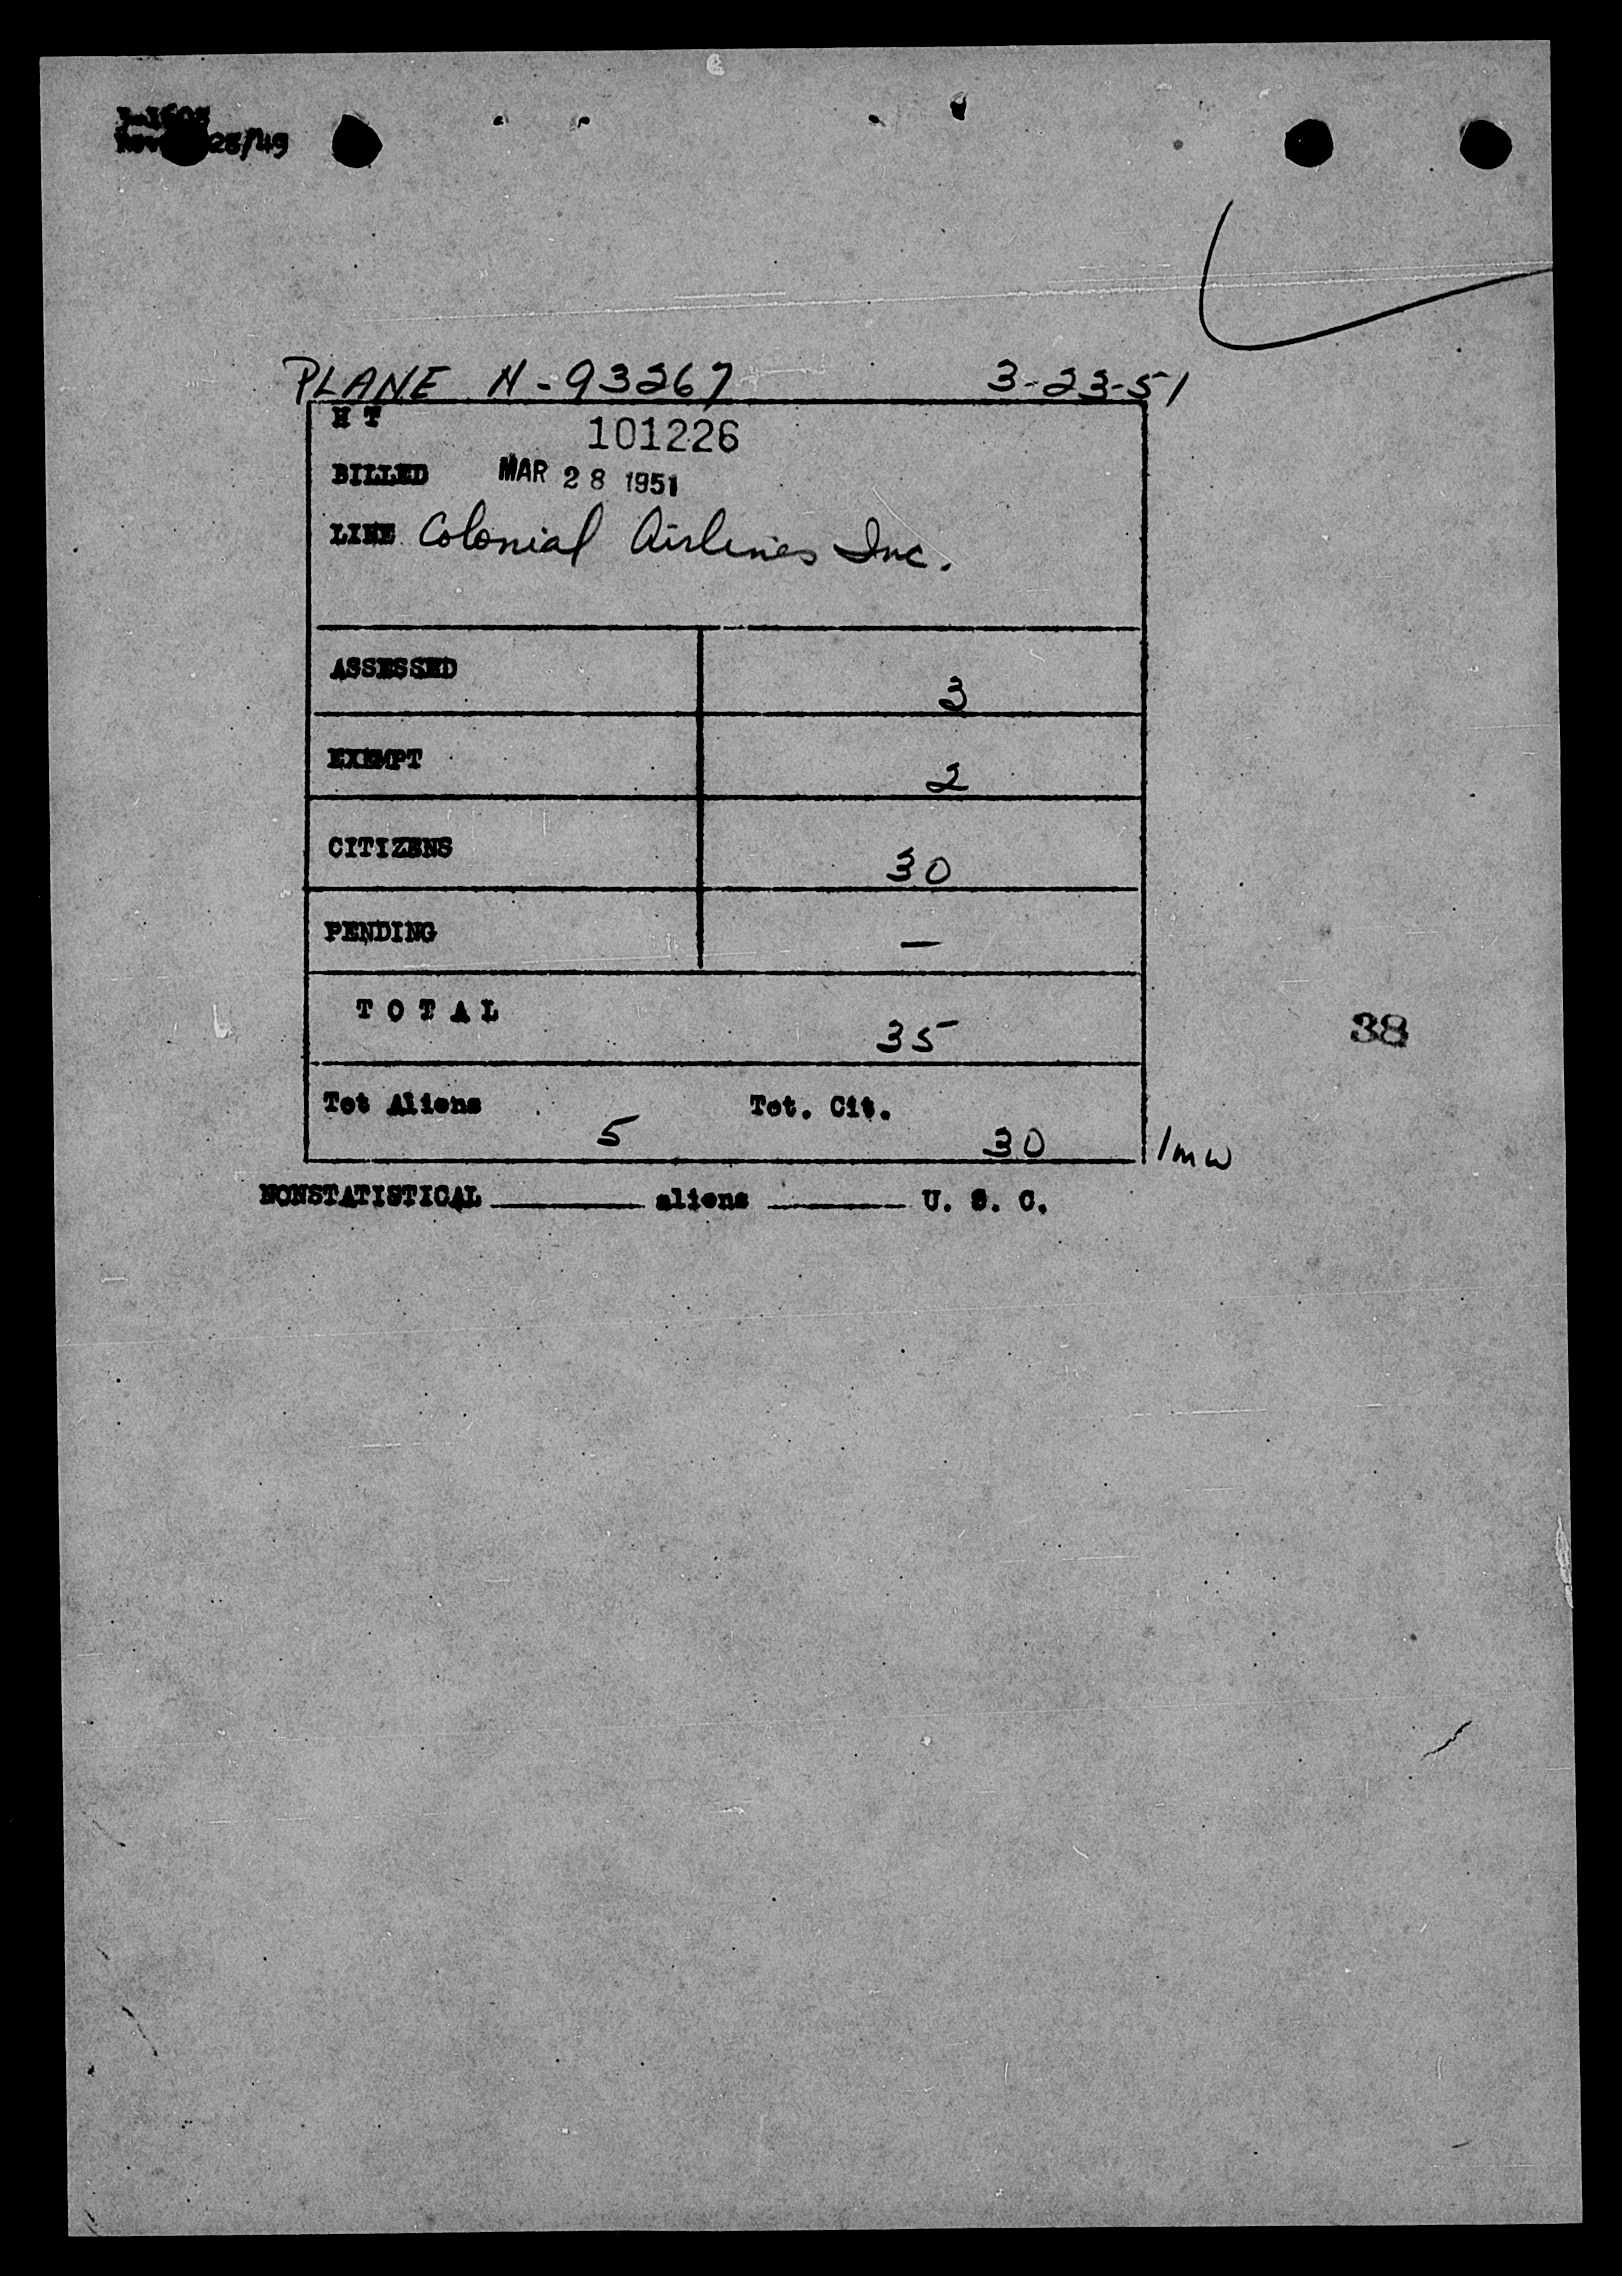 25/49
PLANE N-93267 3-23-51
H T 101226
BILLED MAR 28 1951
LINE Colonial Airlines Inc.
ASSESSED 3
EXEMPT 2
CITIZENS 30
PENDING —
TOTAL 35
38
Tot Aliens 5 Tot. Cit. 30 /mw
NONSTATISTICAL ______ aliens ______ U. S. C.